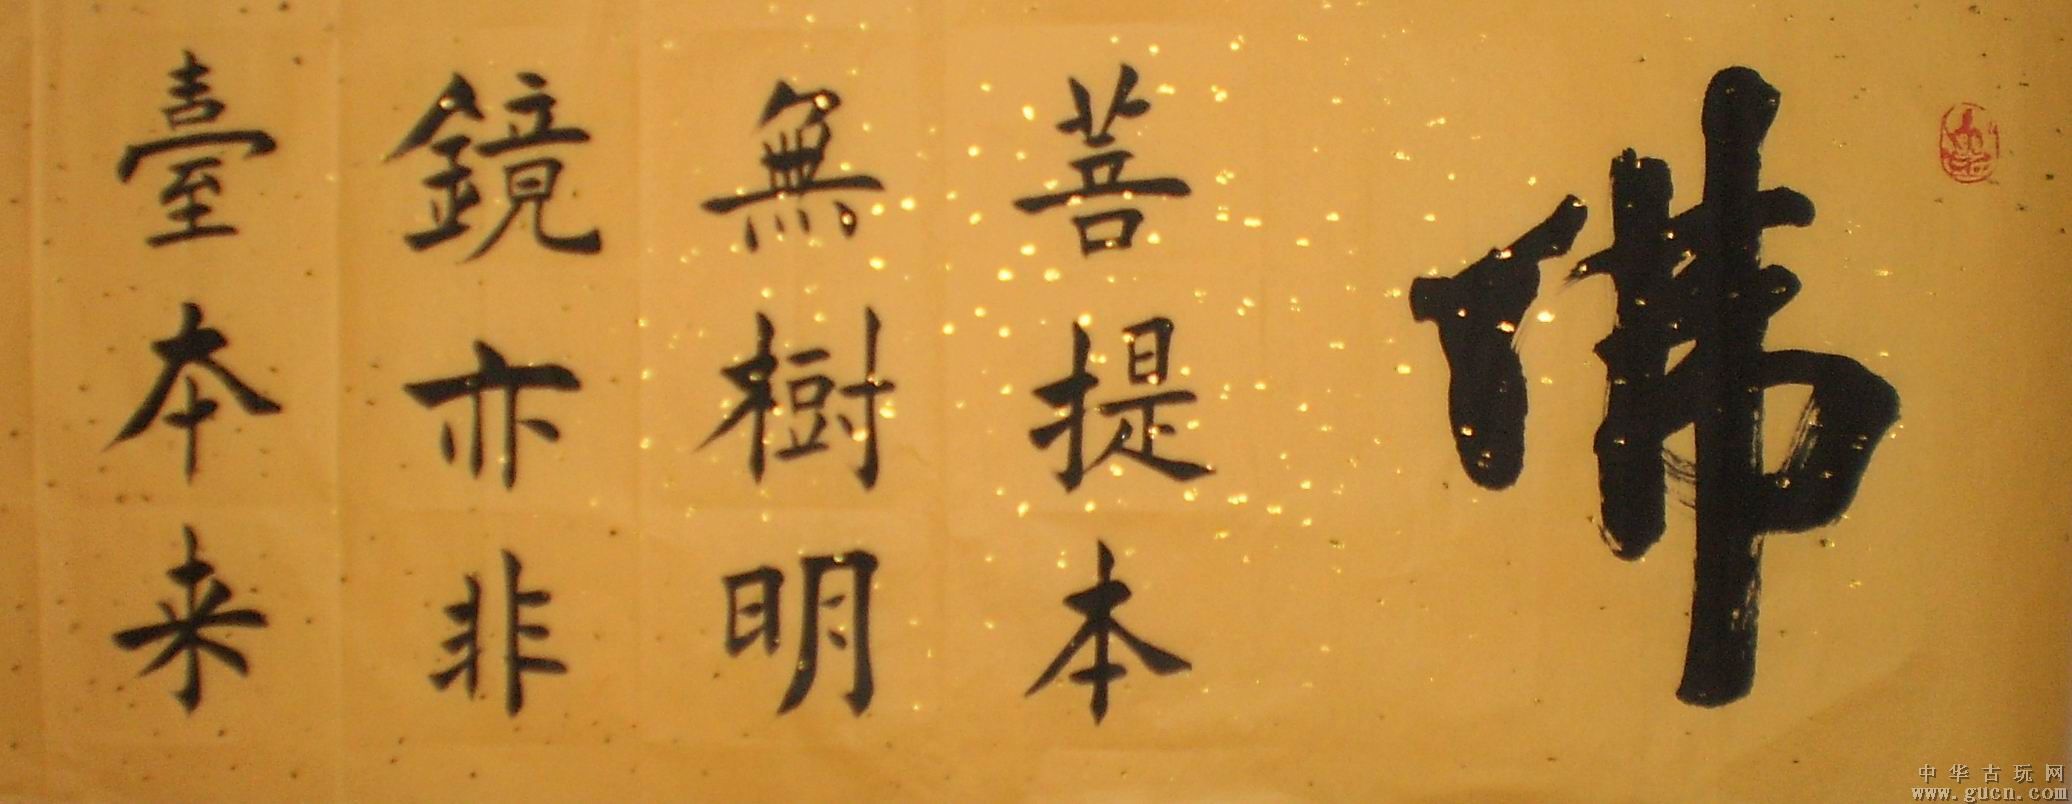 佛
菩提本
無樹明
鏡亦非
臺本来
中华古玩网
www.gucn.com